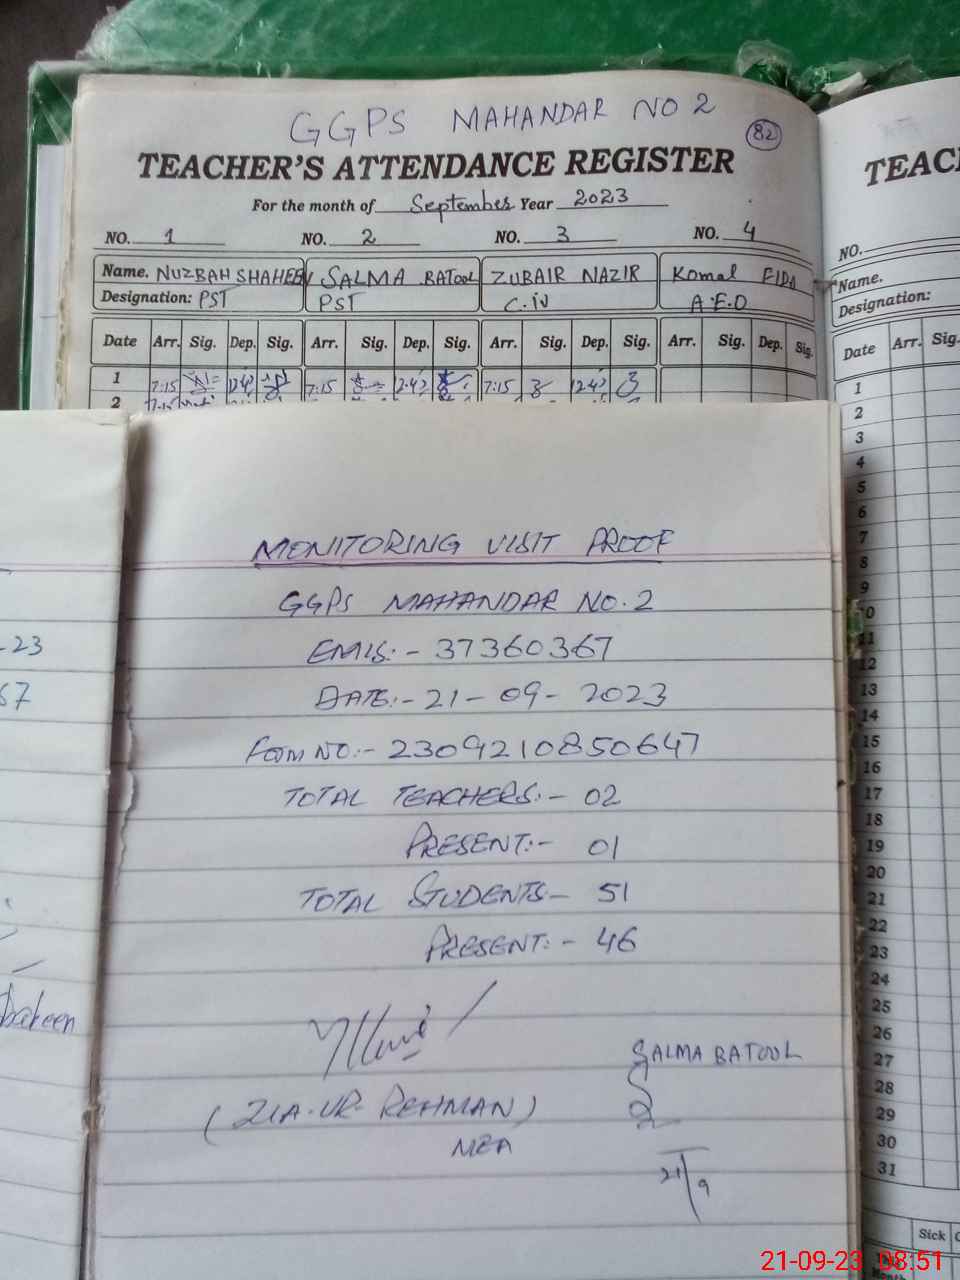 GGPS MAHANDAR NO 2
82
TEACHER'S ATTENDANCE REGISTER
For the month of September Year 2023
NO. 1 NO. 2 NO. 3 NO. 4
Name. NUZBAH SHAHEEN SALMA BATOOL ZUBAIR NAZIR Komal FIDA
Designation: PST PST C.IV A.E.O
Date Arr. Sig. Dep. Sig. Arr. Sig. Dep. Sig. Arr. Sig. Dep. Sig. Arr. Sig. Dep. Sig.
1 7:15 12:42 7:15 12:42 7:15 12:42
2 7:15
TEAC
NO.
Name.
Designation:
Date Arr. Sig.
1
2
3
4
5
6
7
8
9
10
11
12
13
14
15
16
17
18
19
20
21
22
23
24
25
26
27
28
29
30
31
Sick
-23
67
haheen
MONITORING VISIT PROOF
GGPS MAHANDAR NO. 2
EMIS:- 37360367
DATE:- 21-09-2023
FORM NO:- 2309210850647
TOTAL TEACHERS:- 02
PRESENT:- 01
TOTAL STUDENTS- 51
PRESENT:- 46
SALMA BATOOL
(ZIA-UR-REHMAN)
MEA
21/9
21-09-23 08:51